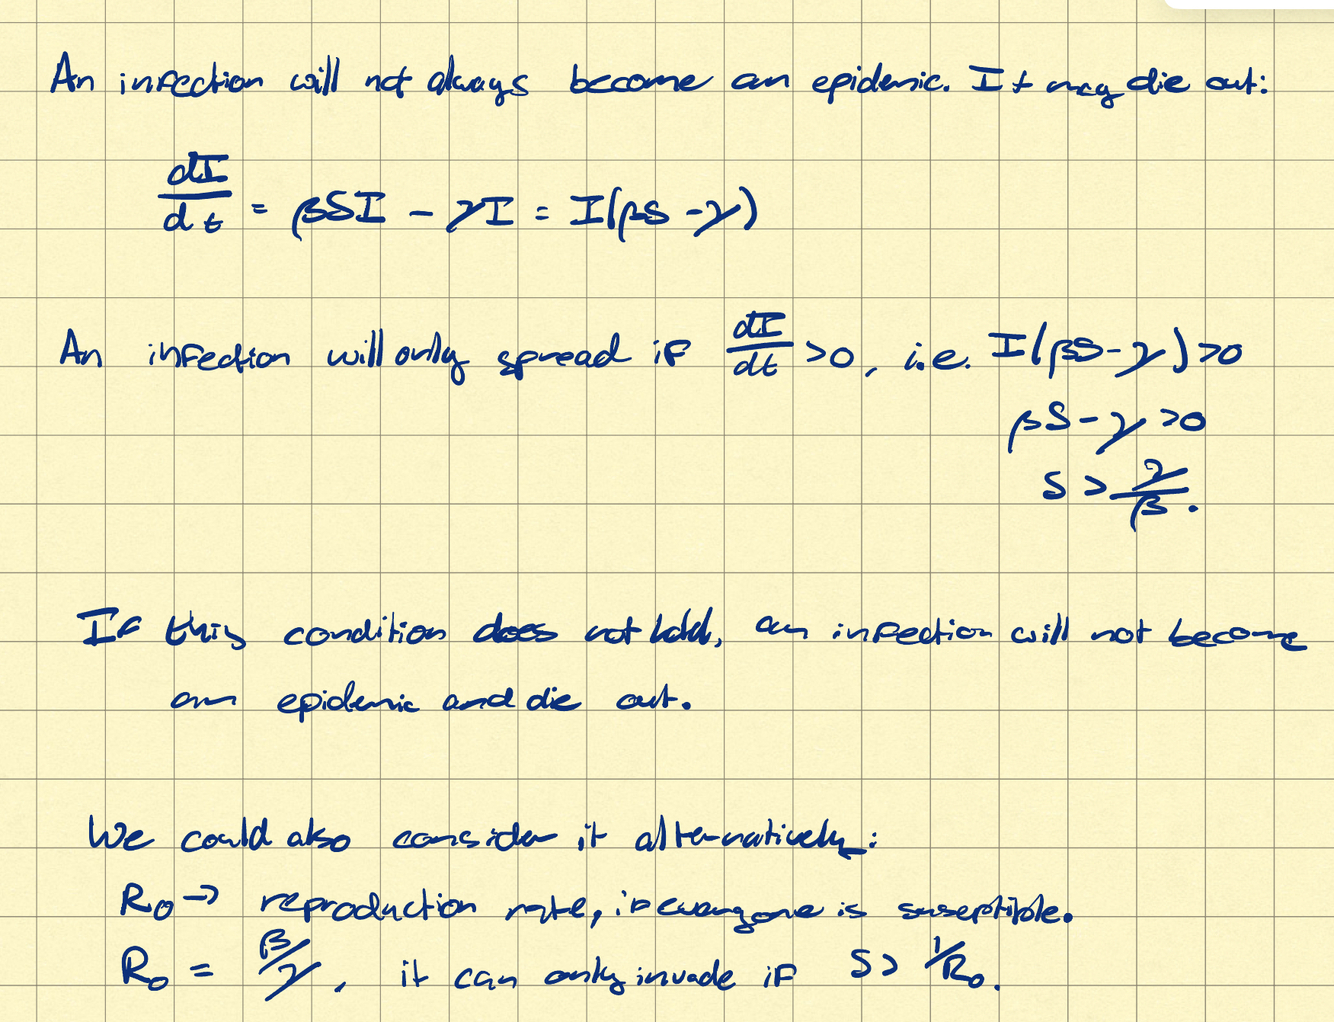 An infection will not always become an epidemic. It may die out:
dI/dt = βSI - γI = I(βS - γ)
An infection will only spread if dI/dt > 0, i.e. I(βS - γ) > 0
βS - γ > 0
S > γ/β.
If this condition does not hold, an infection will not become
an epidemic and die out.
We could also consider it alternatively:
R₀ → reproduction rate, if everyone is suseptible.
R₀ = β/γ, it can only invade if S > 1/R₀.